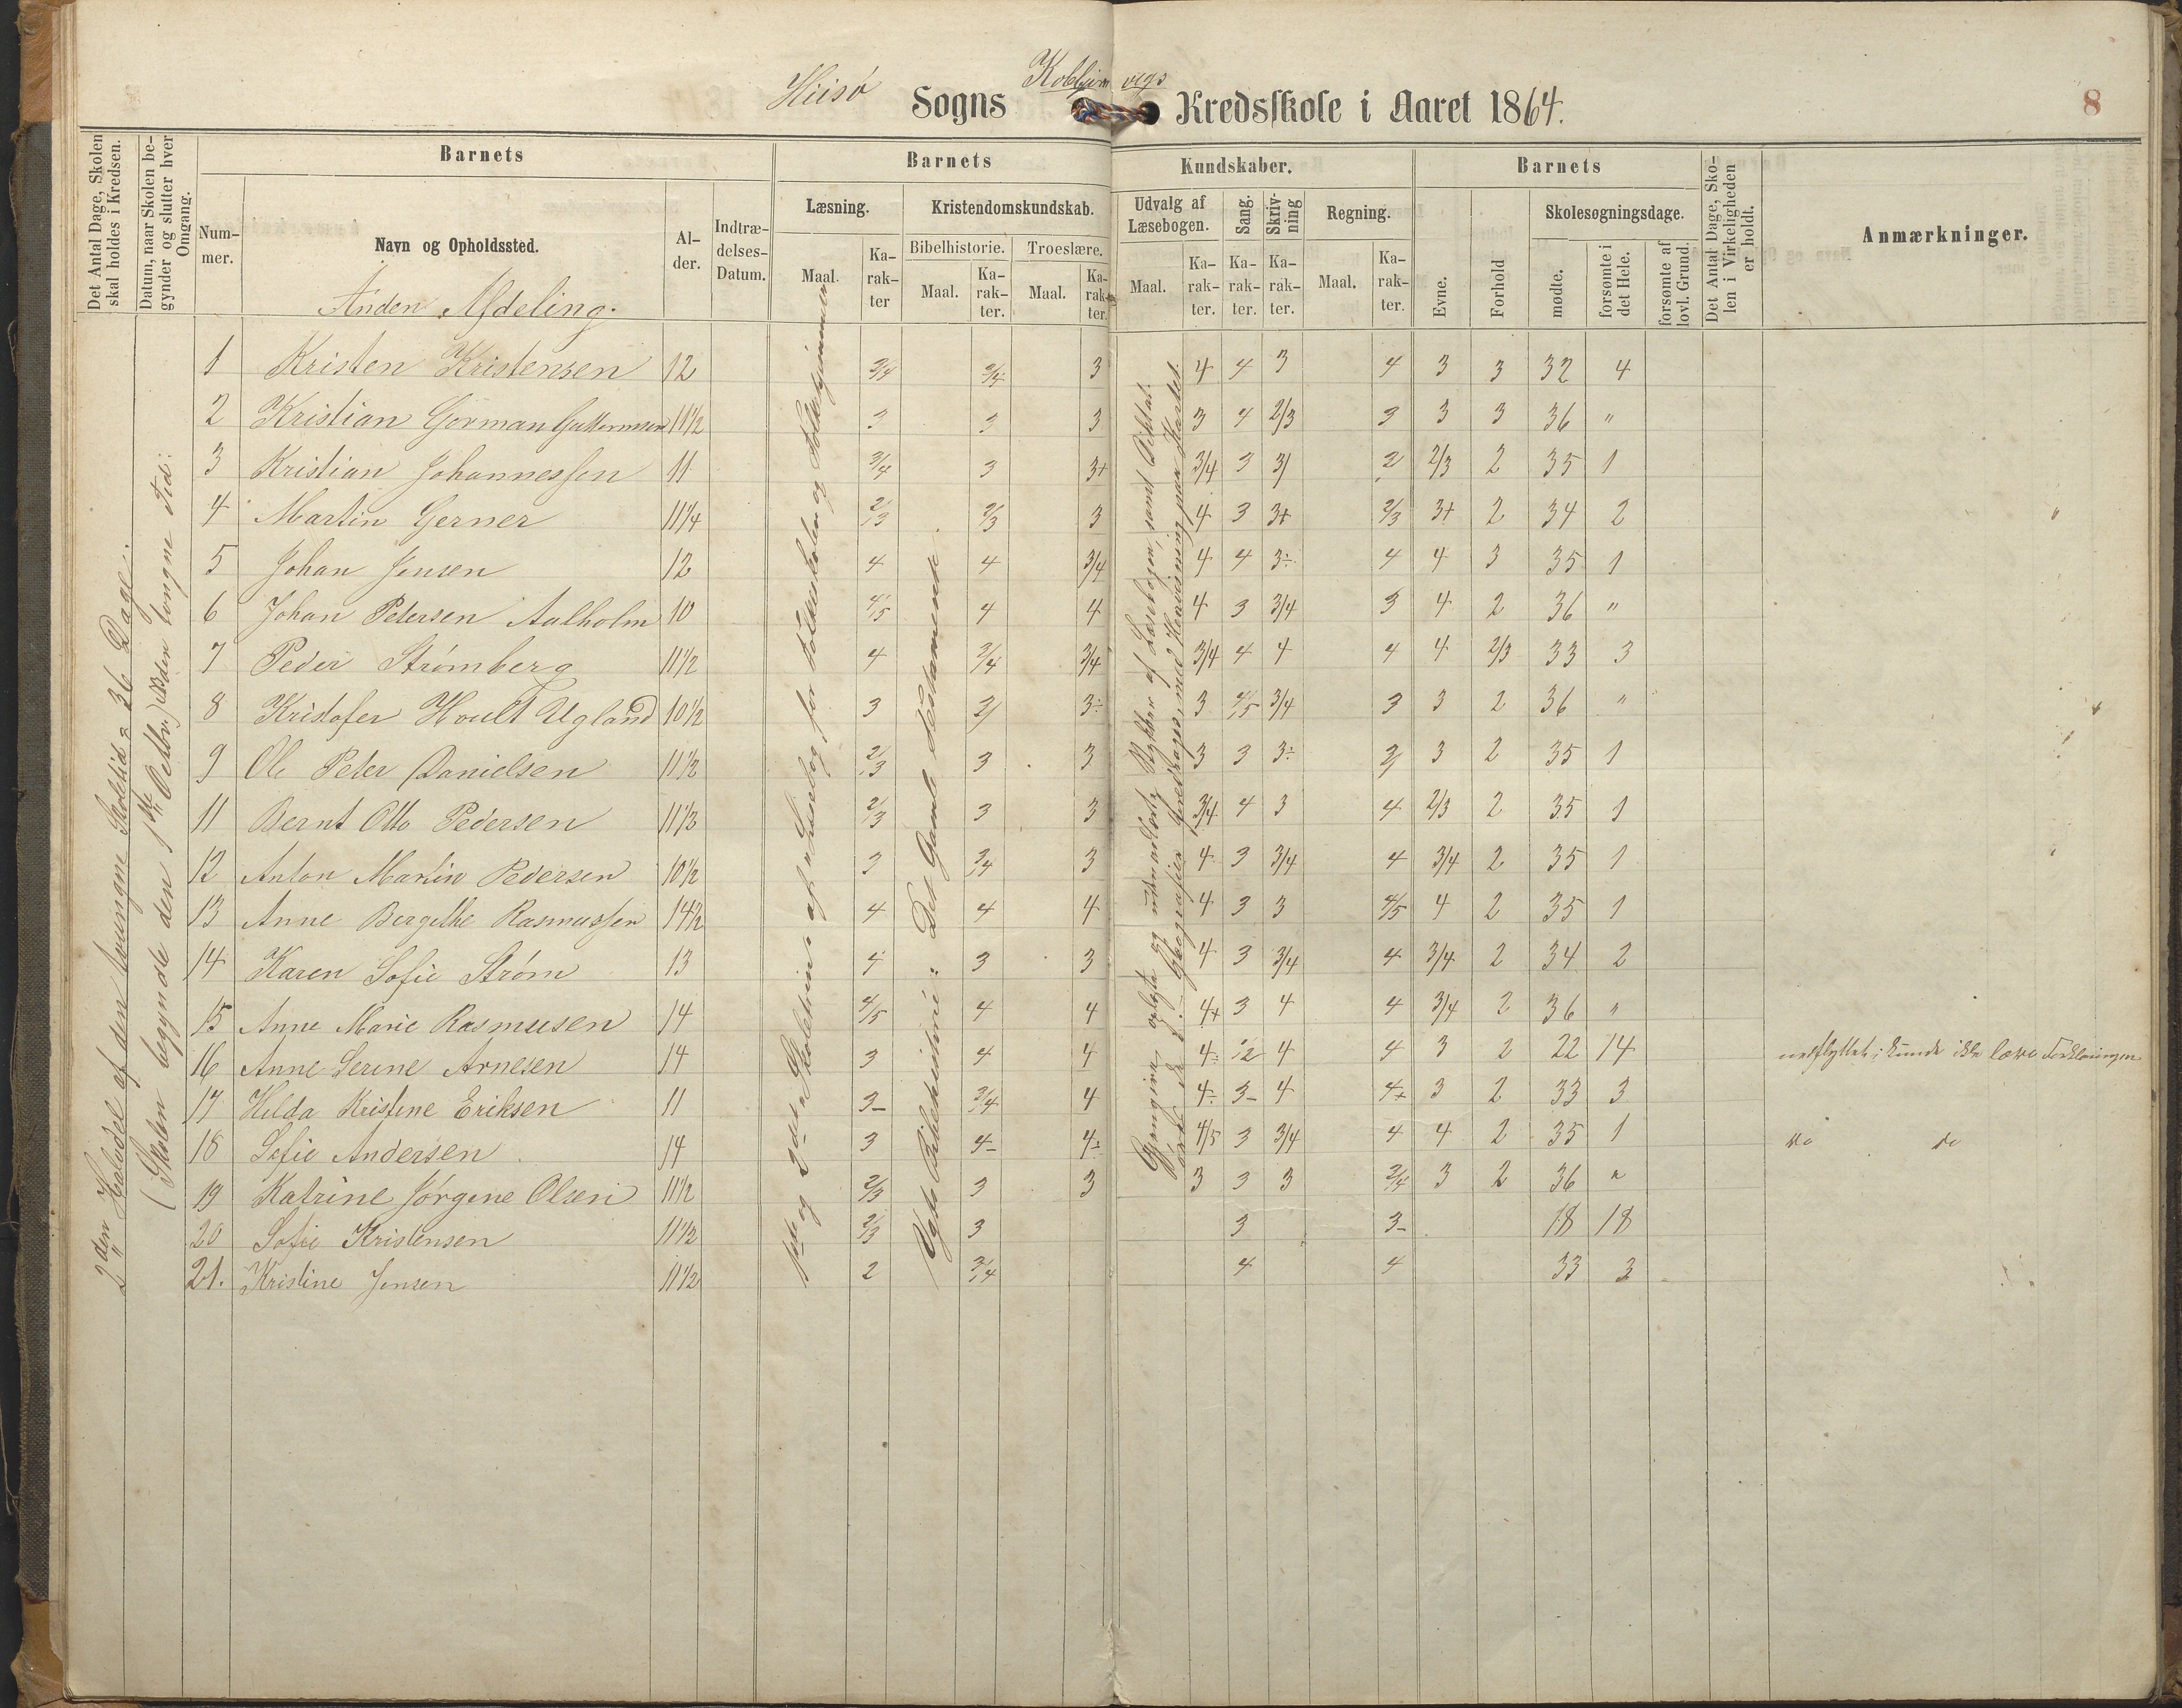 Hiisø Sogns Kobbervigs Kredsskole i Aaret 1864.
8
Det Antal Dage, Skolen skal holdes i Kredsen.
Datum, naar Skolen begynder og slutter hver Omgang.
Barnets
Nummer.
Navn og Opholdssted.
Alder.
Indtrædelses-Datum.
Barnets Kundskaber.
Læsning.
Maal.
Karakter
Kristendomskundskab.
Bibelhistorie.
Maal.
Karakter.
Troeslære.
Maal.
Karakter.
Udvalg af Læsebogen.
Maal.
Karakter.
Sang.
Karakter.
Skrivning
Karakter.
Regning.
Maal.
Karakter.
Barnets
Evne.
Forhold
Skolesøgningsdage.
mødte.
forsømte i det Hele.
forsømte af lovl. Grund.
Det Antal Dage, Skolen i Virkeligheden er holdt.
Anmærkninger.
Anden Afdeling.
2den Halvdel af den tvungne Skoletid = 36 Dage.
(Skolen begynde den 1ste Octbr.) Den tvngne Tid:
1ste og 2det Skoletrin af "Læsebog for Folkeskolen og Folkehjemmet
Vogts Bibelhistorie: Det Gamle Testamente.
1 Kristen Kristensen 12 3/4 3/4 3 4 4 3 4 3 3 32 4
2 Kristian Gorman Guttormsen 11 1/2 3 3 3 3 4 2/3 3 3 3 36 "
3 Kristian Johannessen 11 3/4 3 3+ 3/4 3 3/ 2 2/3 2 35 1
4 Martin Gerner 11 1/4 2/3 2/3 3 4 3 3+ 2/3 3+ 2 34 2
5 Johan Jensen 12 4 4 3/4 4 4 3÷ 4 4 3 35 1
6 Johan Petersen Aalholm 10 4/5 4 4 4 3 3/4 3 4 2 36 "
7 Peder Strømberg 11 1/2 4 3/4 3/4 3/4 4 4 4 4 2/3 33 3
8 Kristofer Hoult Ugland 10 1/2 3 3/ 3÷ 3 4/5 3/4 3 3 2 36 "
9 Ole Peter Danielsen 11 1/2 2/3 3 3 3 3 3÷ 3/ 3 2 35 1
11 Bernt Otto Pedersen 11 1/3 2/3 3 3 3/4 4 3 4 2/3 2 35 1
12 Anton Martin Pedersen 10 1/2 3 3/4 3 4 3 3/4 4 3/4 2 35 1
13 Anne Bergithe Rasmussen 14 1/2 4 4 4 4 3 3 4/5 4 2 35 1
14 Karen Sofie Strøm 13 4 3 3 4 3 3/4 4 3/4 2 34 2
15 Anne Marie Rasmussen 14 4/5 4 4 4+ 3 4 4 3/4 2 36 "
16 Anne Serine Arnesen 14 3 4 4 4÷ 1/2 4 4 3 2 22 14 udflyttet; kunde ikke lære Forklaringen
17 Hilda Kristine Eriksen 11 3- 3/4 4 4÷ 3- 4 4+ 3 2 33 3
18 Sofie Andersen 14 3 4- 4÷ 4/5 3 3/4 4 4 2 35 1 do do
19 Katrine Jørgine Olsen 11 1/2 2/3 3 3 3 3 3 3/4 3 2 36 "
20 Sofie Kristensen 11 1/2 2/3 3 3 3- 18 18
21. Kristine Jensen 11 1/2 2 3/4 4 4 33 3